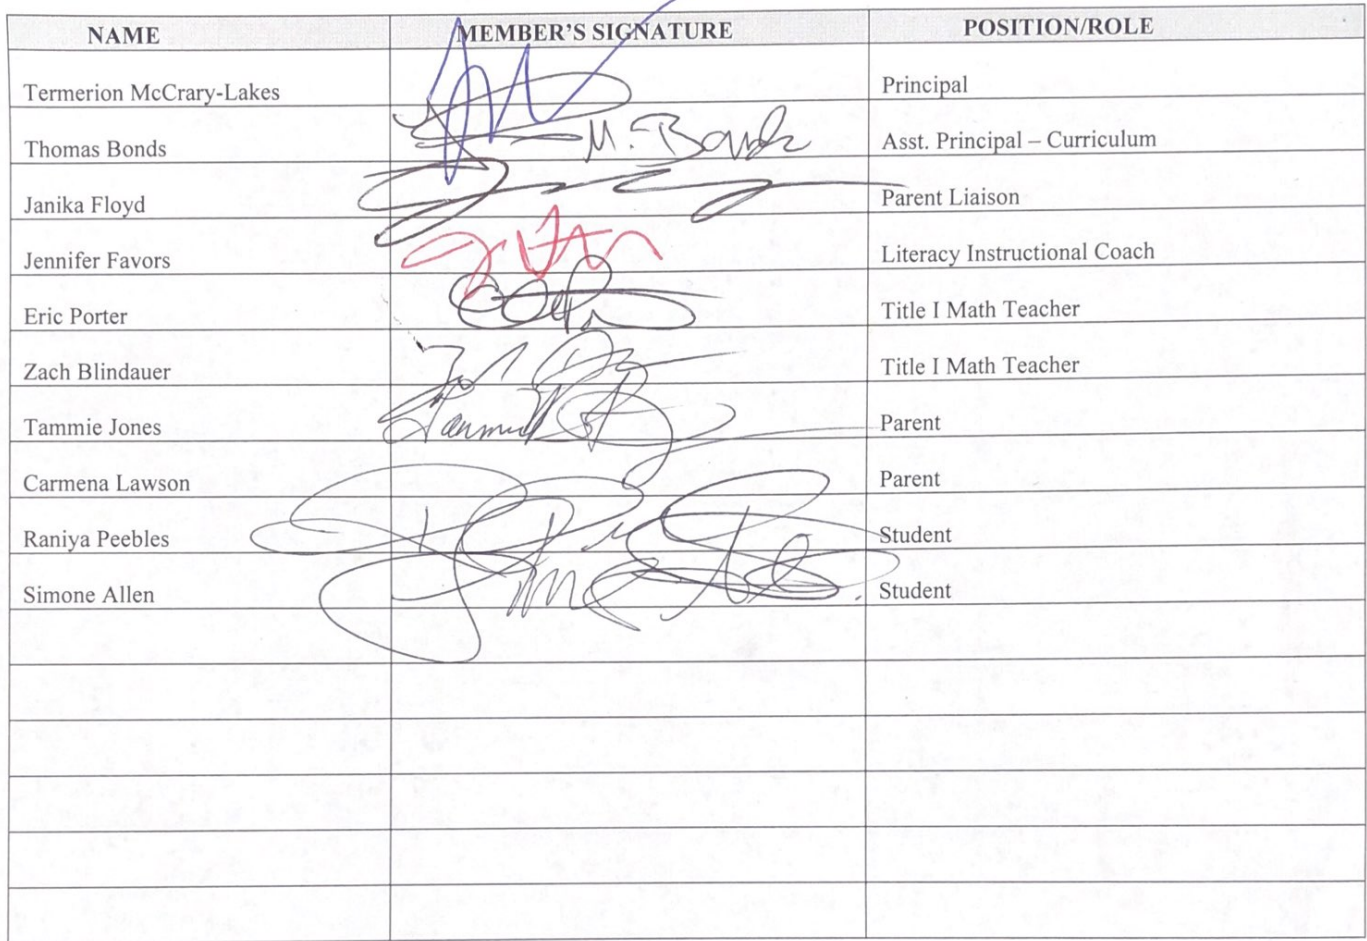 NAME MEMBER'S SIGNATURE POSITION/ROLE
Termerion McCrary-Lakes Principal
Thomas Bonds M. Bonds Asst. Principal – Curriculum
Janika Floyd Parent Liaison
Jennifer Favors Literacy Instructional Coach
Eric Porter Title I Math Teacher
Zach Blindauer Title I Math Teacher
Tammie Jones Parent
Carmena Lawson Parent
Raniya Peebles Student
Simone Allen Student